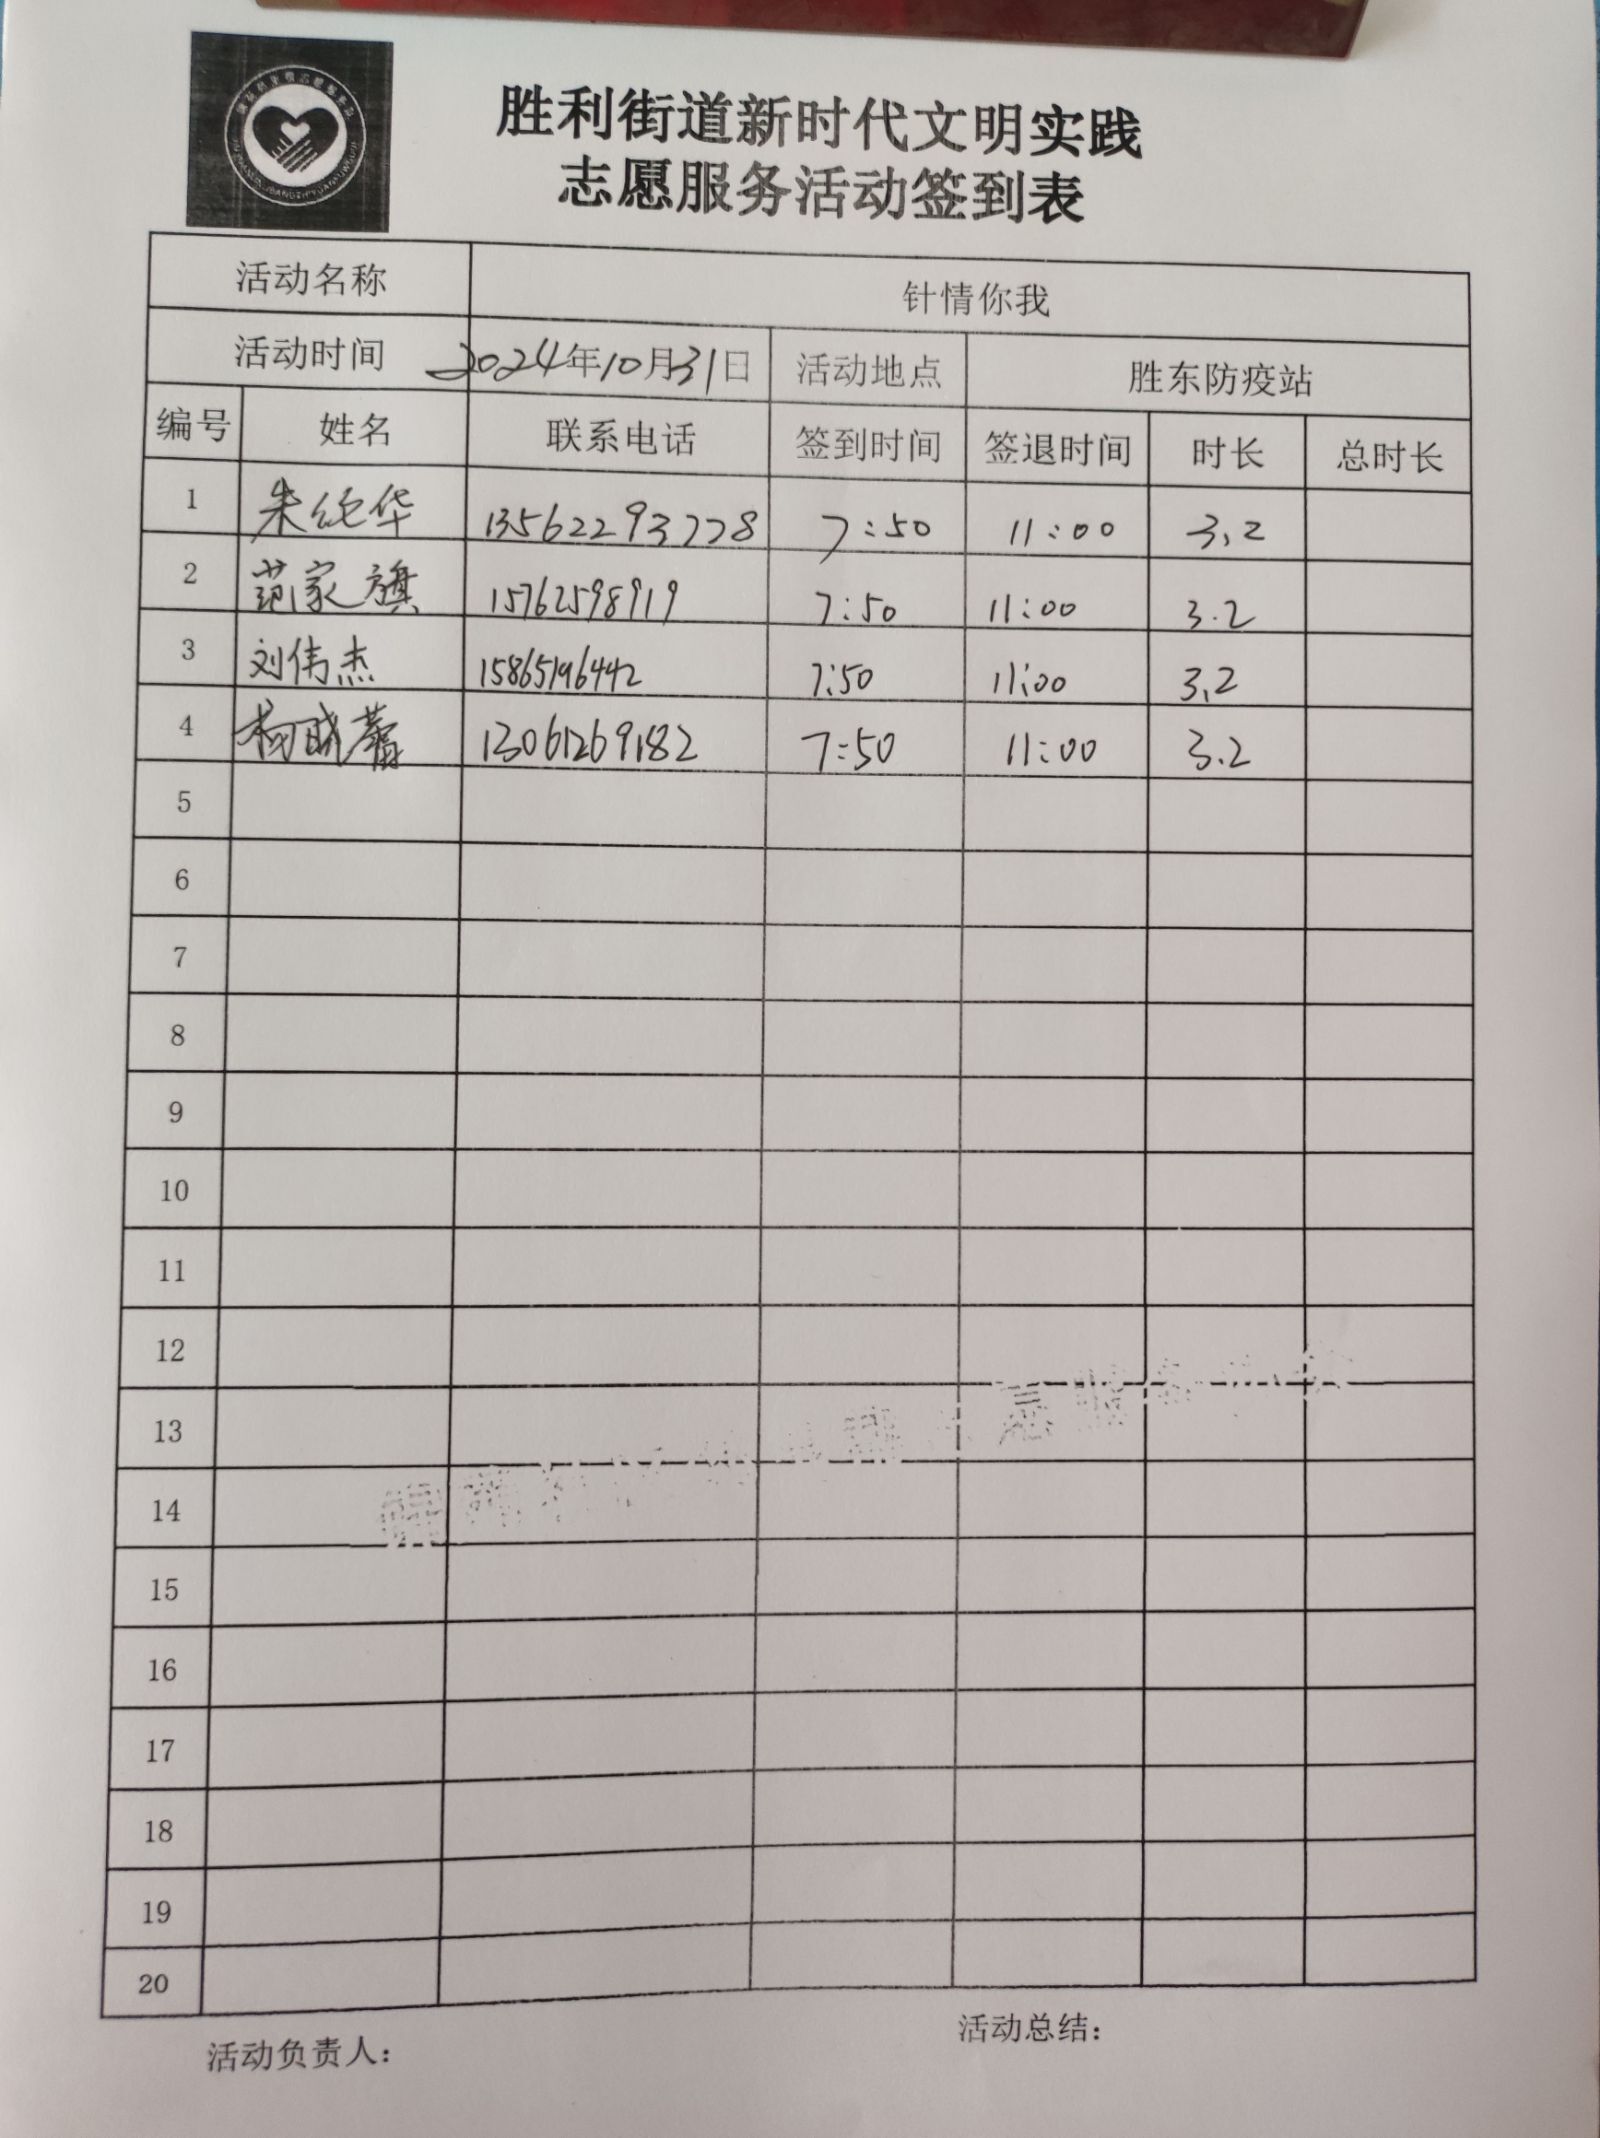 胜利街道新时代文明实践
志愿服务活动签到表
活动名称 针情你我
活动时间 2024年10月31日 活动地点 胜东防疫站
编号 姓名 联系电话 签到时间 签退时间 时长 总时长
1 朱纯华 13562293778 7:50 11:00 3.2
2 范家旗 15762598919 7:50 11:00 3.2
3 刘伟杰 15865196442 7:50 11:00 3.2
4 杨晓蕾 13061269182 7:50 11:00 3.2
5
6
7
8
9
10
11
12
13
14
15
16
17
18
19
20
活动负责人： 活动总结：